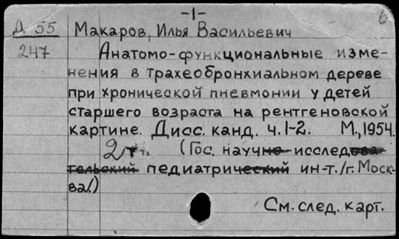 -1-
Д 55 Макаров, Илья Васильевич
247 Анатомо-функциональные изме-
нения в трахеобронхиальном дереве
при хронической пневмонии у детей
старшего возраста на рентгеновской
картине. Дисс. канд. ч. 1-2. М., 1954.
2 т. (Гос. научно-исследова-
тельский педиатрический ин-т. /г. Моск-
ва/)
См. след. карт.